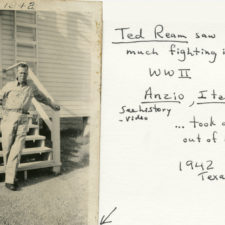 1942
Ted Ream saw
much fighting i
WW II
Anzio, Ite
See history
- video
... took o
out of
1942
Texa